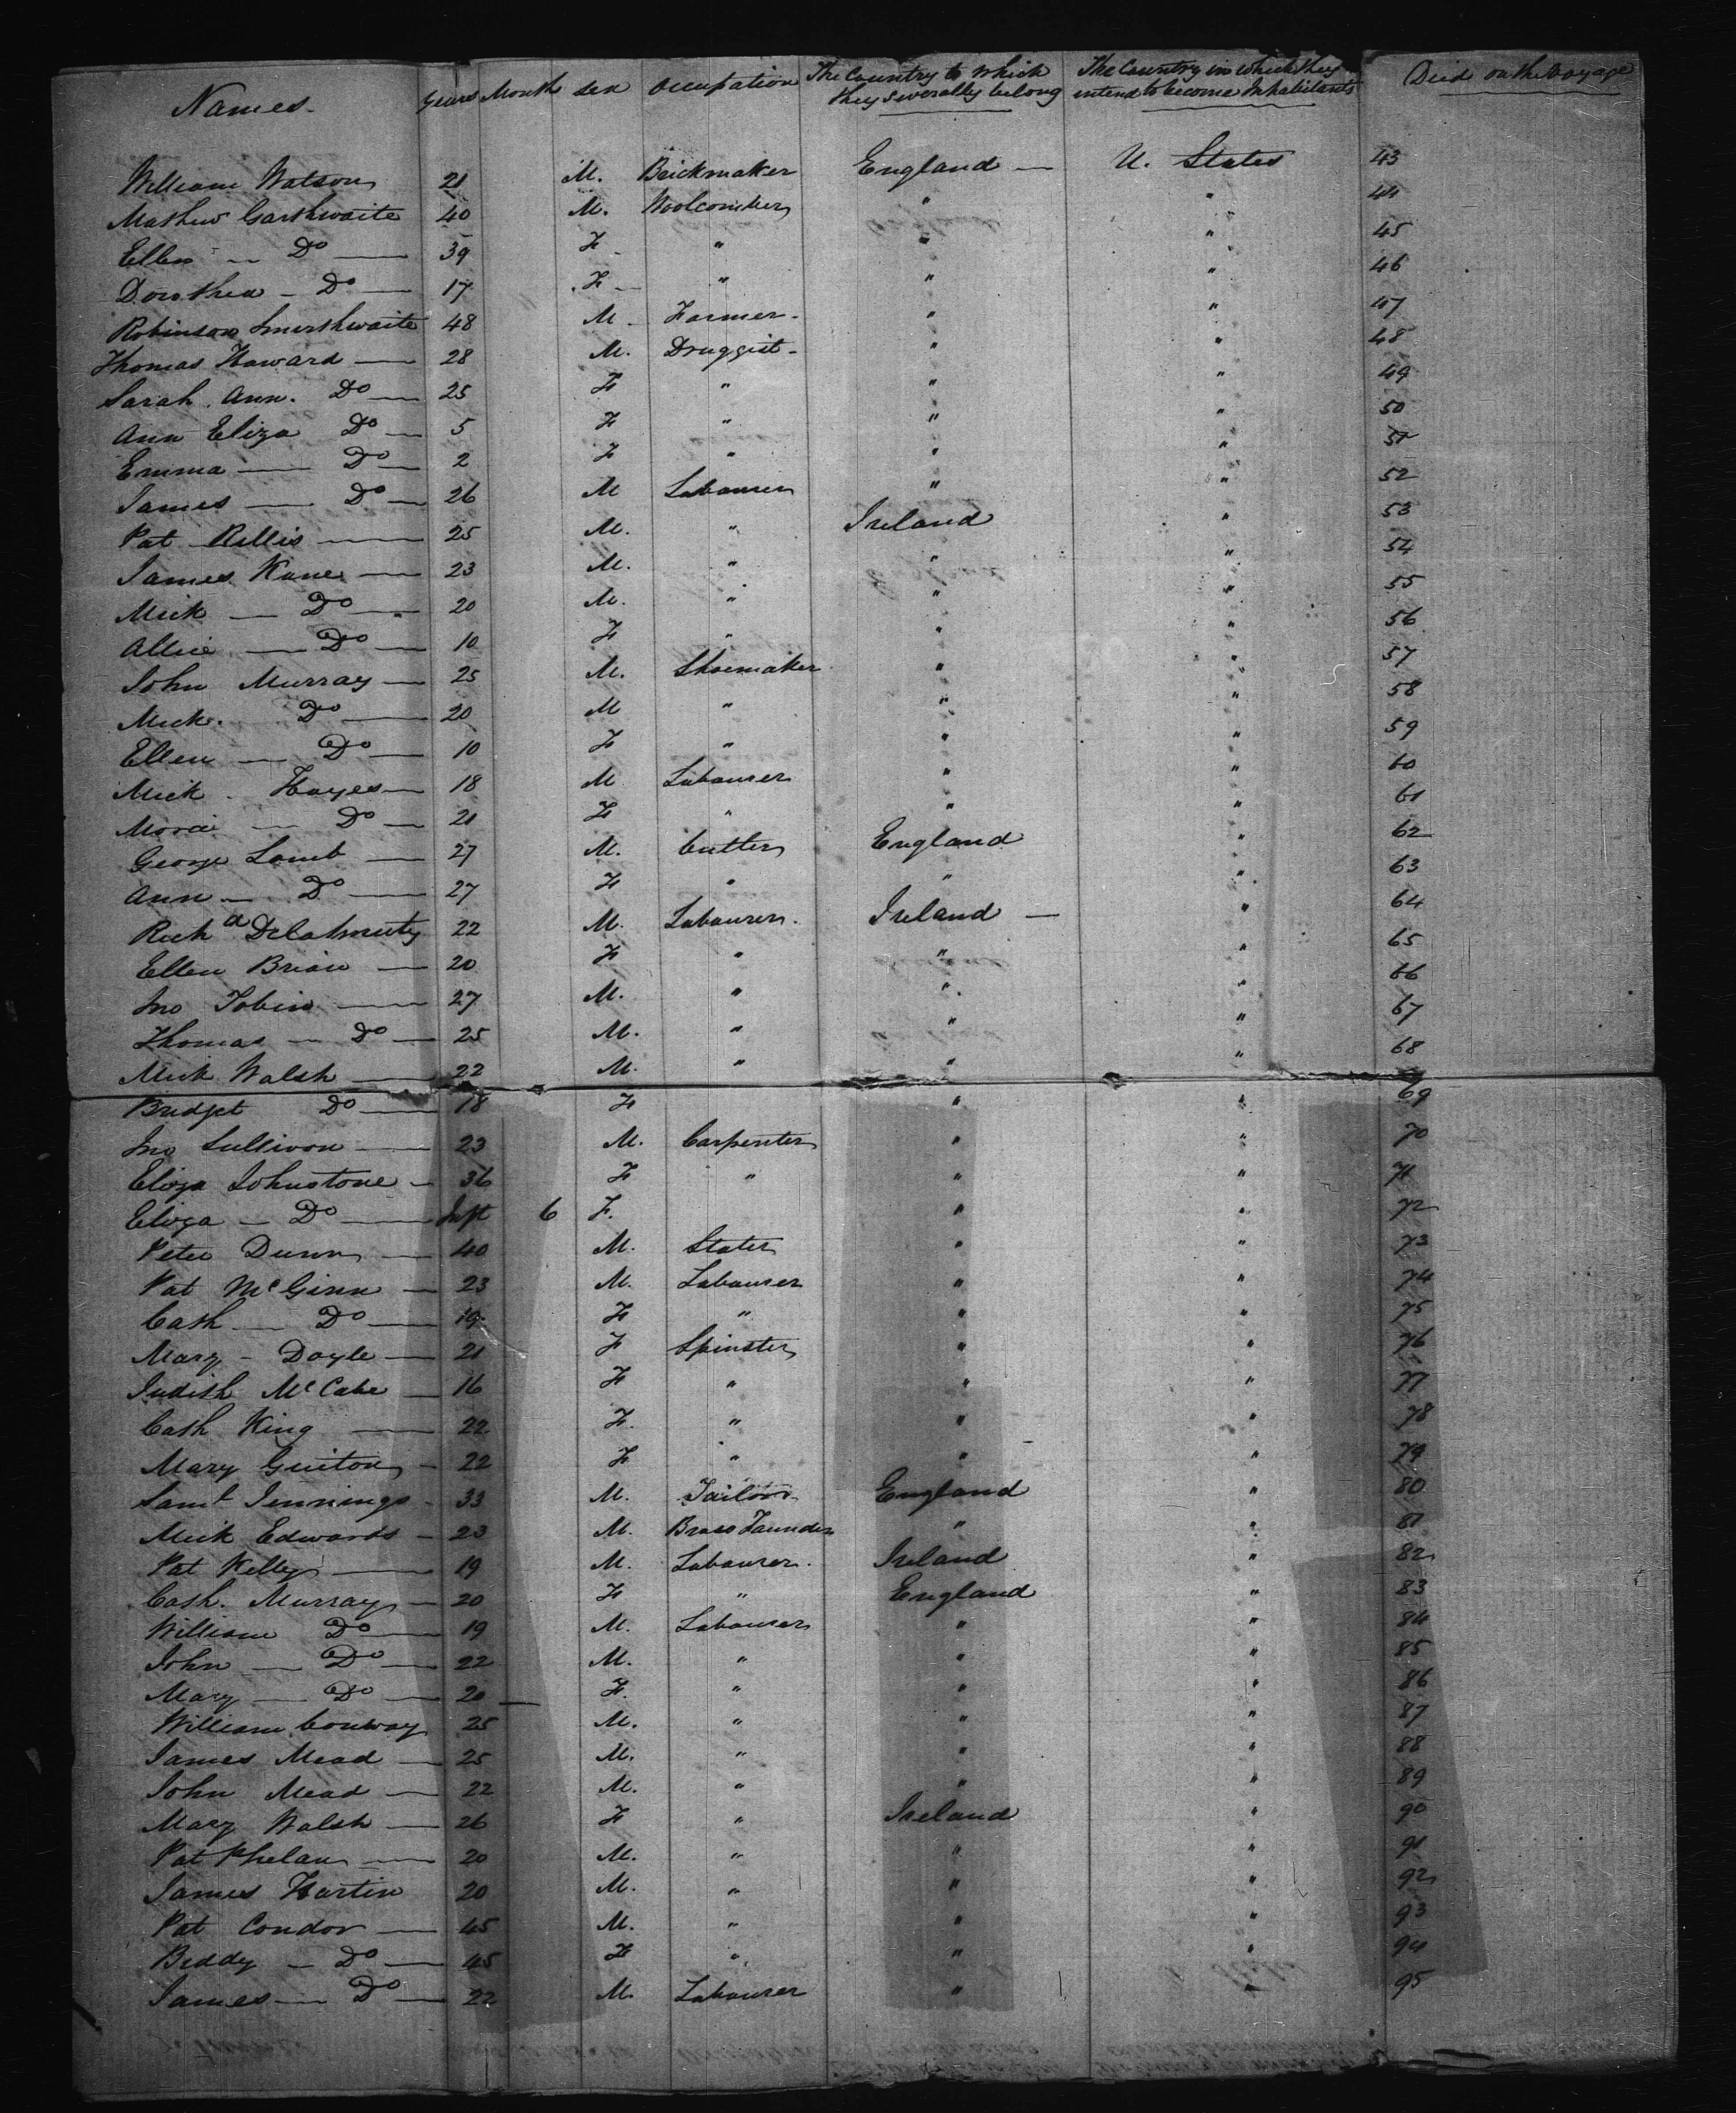 Names. Years Month Sex Occupation The Country to which they severally belong The Country in which they intend to become Inhabitants Died on the Voyage
William Watson 21 M. Brickmaker England — U. States 43
Mathew Garthwaite 40 M. Woolcomber " " 44
Ellen — Do — 39 F " " " 45
Dorothea — Do — 17 F " " " 46
Robinson Smurthwaite 48 M Farmer " " 47
Thomas Howard — 28 M. Druggist " " 48
Sarah Ann. Do — 25 F " " " 49
Ann Eliza Do — 5 F " " " 50
Emma — Do — 2 F " " " 51
James — Do — 26 M Labourer " " 52
Pat Rillis — 25 M. " Ireland " 53
James Kane — 23 M. " " " 54
Mick — Do — 20 M. " " " 55
Allice — Do — 10 F " " " 56
John Murray — 25 M. Shoemaker " " 57
Mick. Do — 20 M " " " 58
Ellen — Do — 10 F " " " 59
Mick Hayes — 18 M Labourer " " 60
Do — 21 F " " " 61
George Lamb — 27 M. Cutler England " 62
Ann — Do — 27 F " " " 63
Richd 22 M. Labourer. Ireland — " 64
Ellen Brian — 20 F " " " 65
Jno Tobin — 27 M. " " " 66
Thomas — Do — 25 M. " " " 67
Mick Walsh — 22 M. " " " 68
Bridget Do — 18 F " " 69
Jno Sullivan — 23 M. Carpenter " " 70
Eliza Johnstone — 36 F " " " 71
Eliza — Do — Inft 6 F. " " 72
Peter Dunn — 40 M. Slater " " 73
Pat McGinn — 23 M. Labourer " " 74
Cath — Do — 19 F " " " 75
Mary — Doyle — 21 F Spinster " " 76
Judith McCabe — 16 F " " " 77
Cath King — 22 F. " " " 78
Mary Guiton — 22 F " " " 79
Saml Jennings 33 M. Tailor England " 80
Mick Edwards — 23 M. Brass Founder " " 81
Pat Kelley — 19 M. Labourer. Ireland " 82
Cath. Murray — 20 F " England " 83
William Do — 19 M. Labourer " " 84
John — Do — 22 M. " " " 85
Mary — Do — 20 — F. " " " 86
William Conway 25 M. " " " 87
James Mead — 25 M. " " " 88
John Mead — 22 M. " " " 89
Mary Walsh — 26 F " Ireland " 90
Pat Phelan — 20 M. " " " 91
James Hartin 20 M. " " " 92
Pat Condor — 45 M. " " " 93
Biddy — Do — 45 F " " " 94
James — Do — 22 M. Labourer " " 95